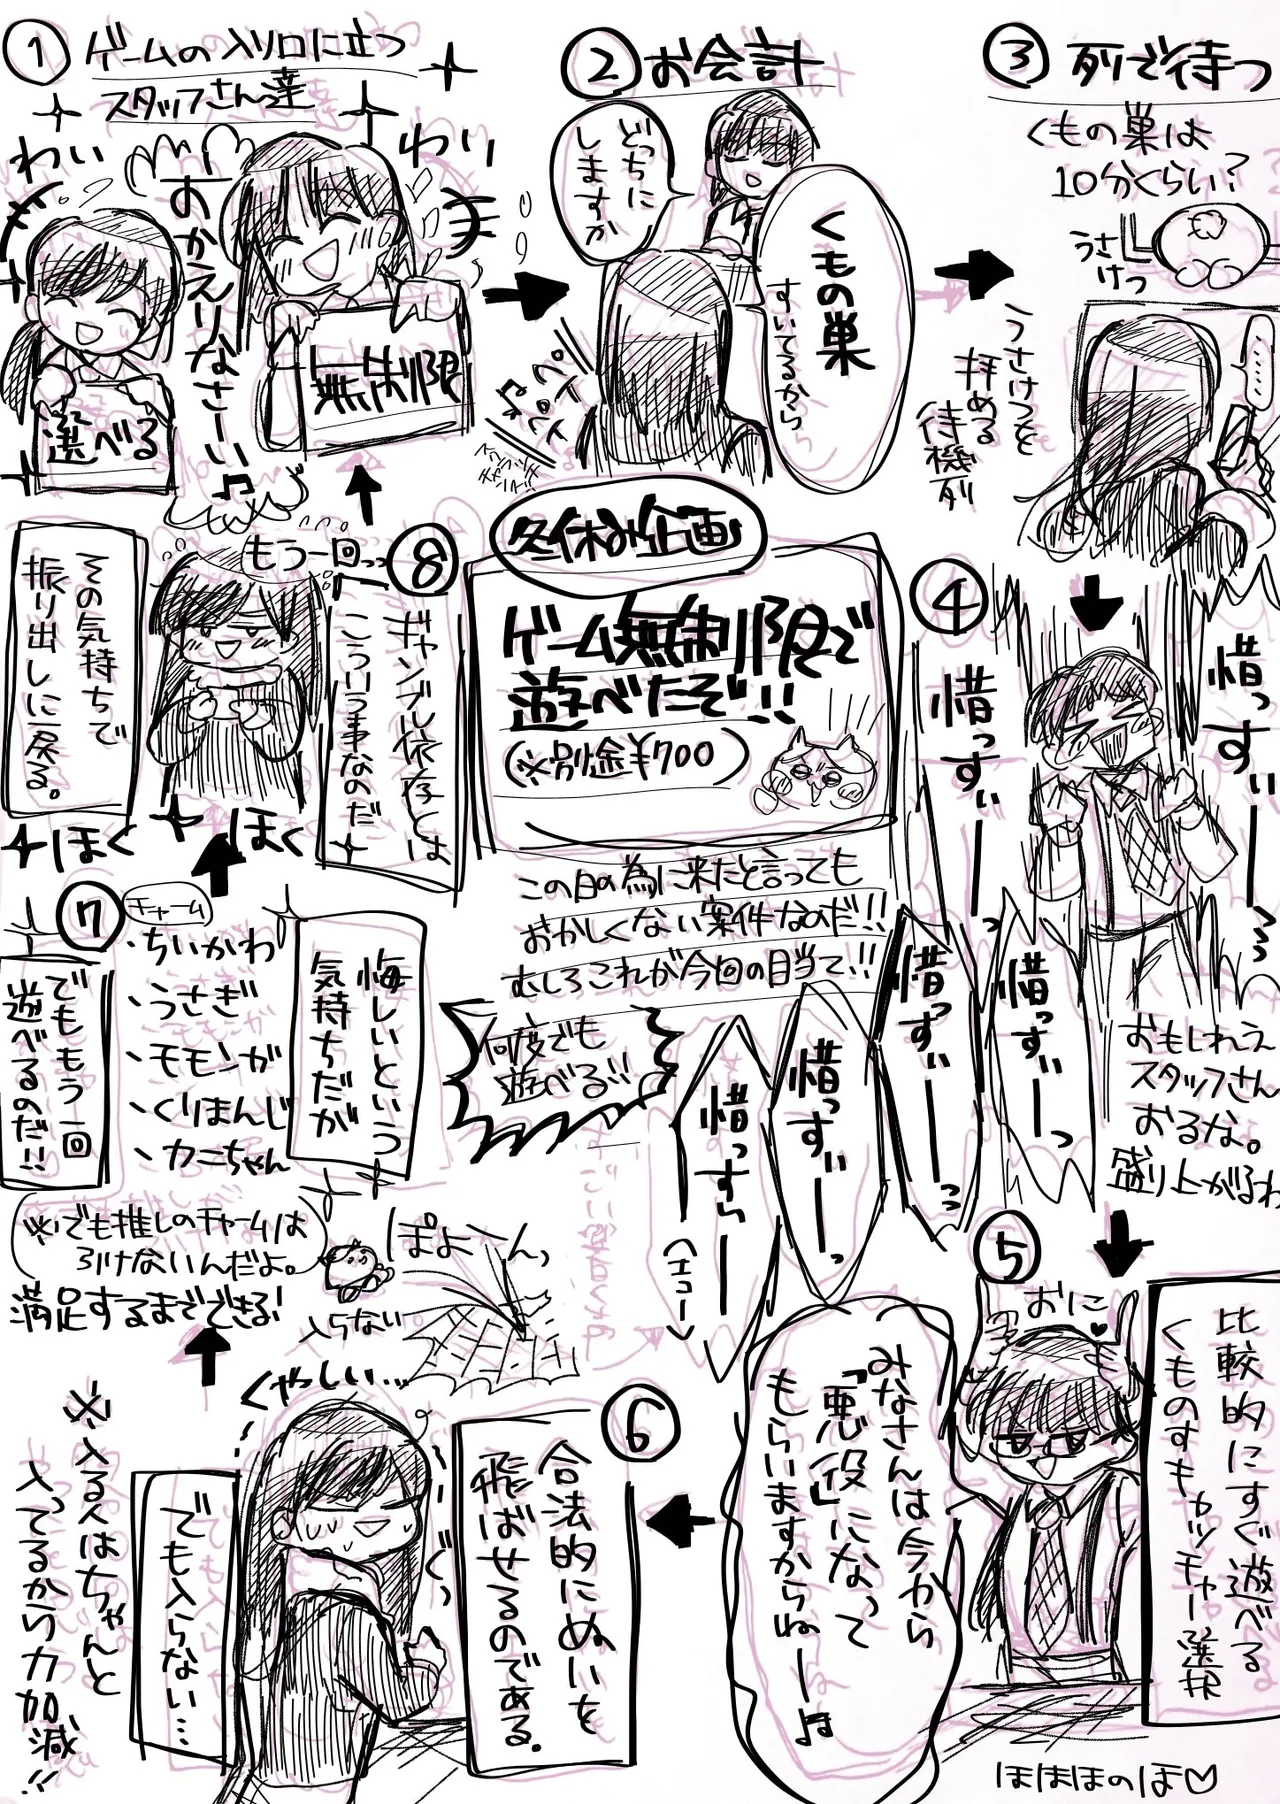 ① ゲームの入り口に立つ
スタッフさん達
わい
わい
おかえりなさーい♪
選べる
無制限
② お会計
どっちに
しますか
くもの巣
すいてるから
ペイ
ペイ♪
③ 列で待つ
くもの巣は
10分くらい?
うさ
けつ
うさけつを
拝める
待機列
④
惜っすぃー
惜っすぃー
惜っすぃーっ
惜っすぃーっ
惜っすぃーっ
惜っすぃー
(エコー)
おもしれえ
スタッフさん
おるな。
盛り上がるわ
冬休み企画
ゲーム無制限で
遊べたぞ!!
(※別途¥700)
この日の為に来たと言っても
おかしくない案件なのだ!!
むしろこれが今回の目当て!!
何度でも
遊べる!!
⑤
おに
比較的にすぐ遊べる
くものすキャッチャー選択
みなさんは今から
「悪役」になって
もらいますからねー♪
ほほほのほ♡
⑥
合法的にぬいを
飛ばせるのである。
くやしい…
ぐっ
でも入らない…
※入る人はちゃんと
入ってるから力加減!!
ぽよーんっ
入らない
⑦
チャーム
・ちいかわ
・うさぎ
・モモンガ
・くりまんじ
・カニちゃん
悔しいという
気持ちだが
でももう一回
遊べるのだ!!
(※でも推しのチャームは
引けないんだよ。)
満足するまでできる!
⑧
もう一回っ
ギャンブル依存とは
こういう事なのだ
その気持ちで
振り出しに戻る。
ほく
ほく